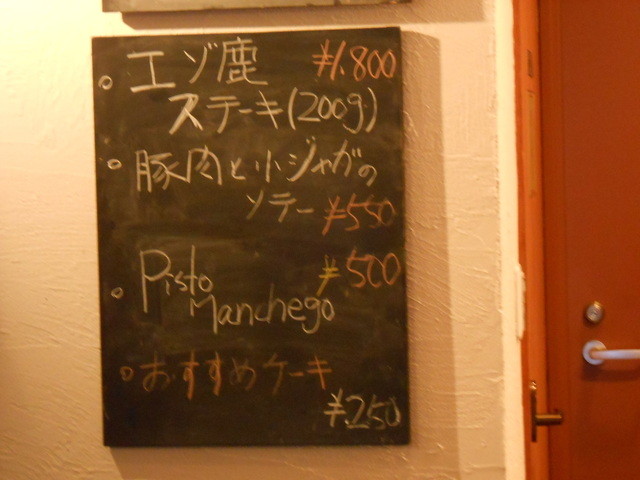 ○ エゾ鹿 ¥1.800
ステーキ(200g)
○ 豚肉と小ジャガの
ソテー ¥550
○ Pisto ¥500
Manchego
○ おすすめケーキ
¥.250